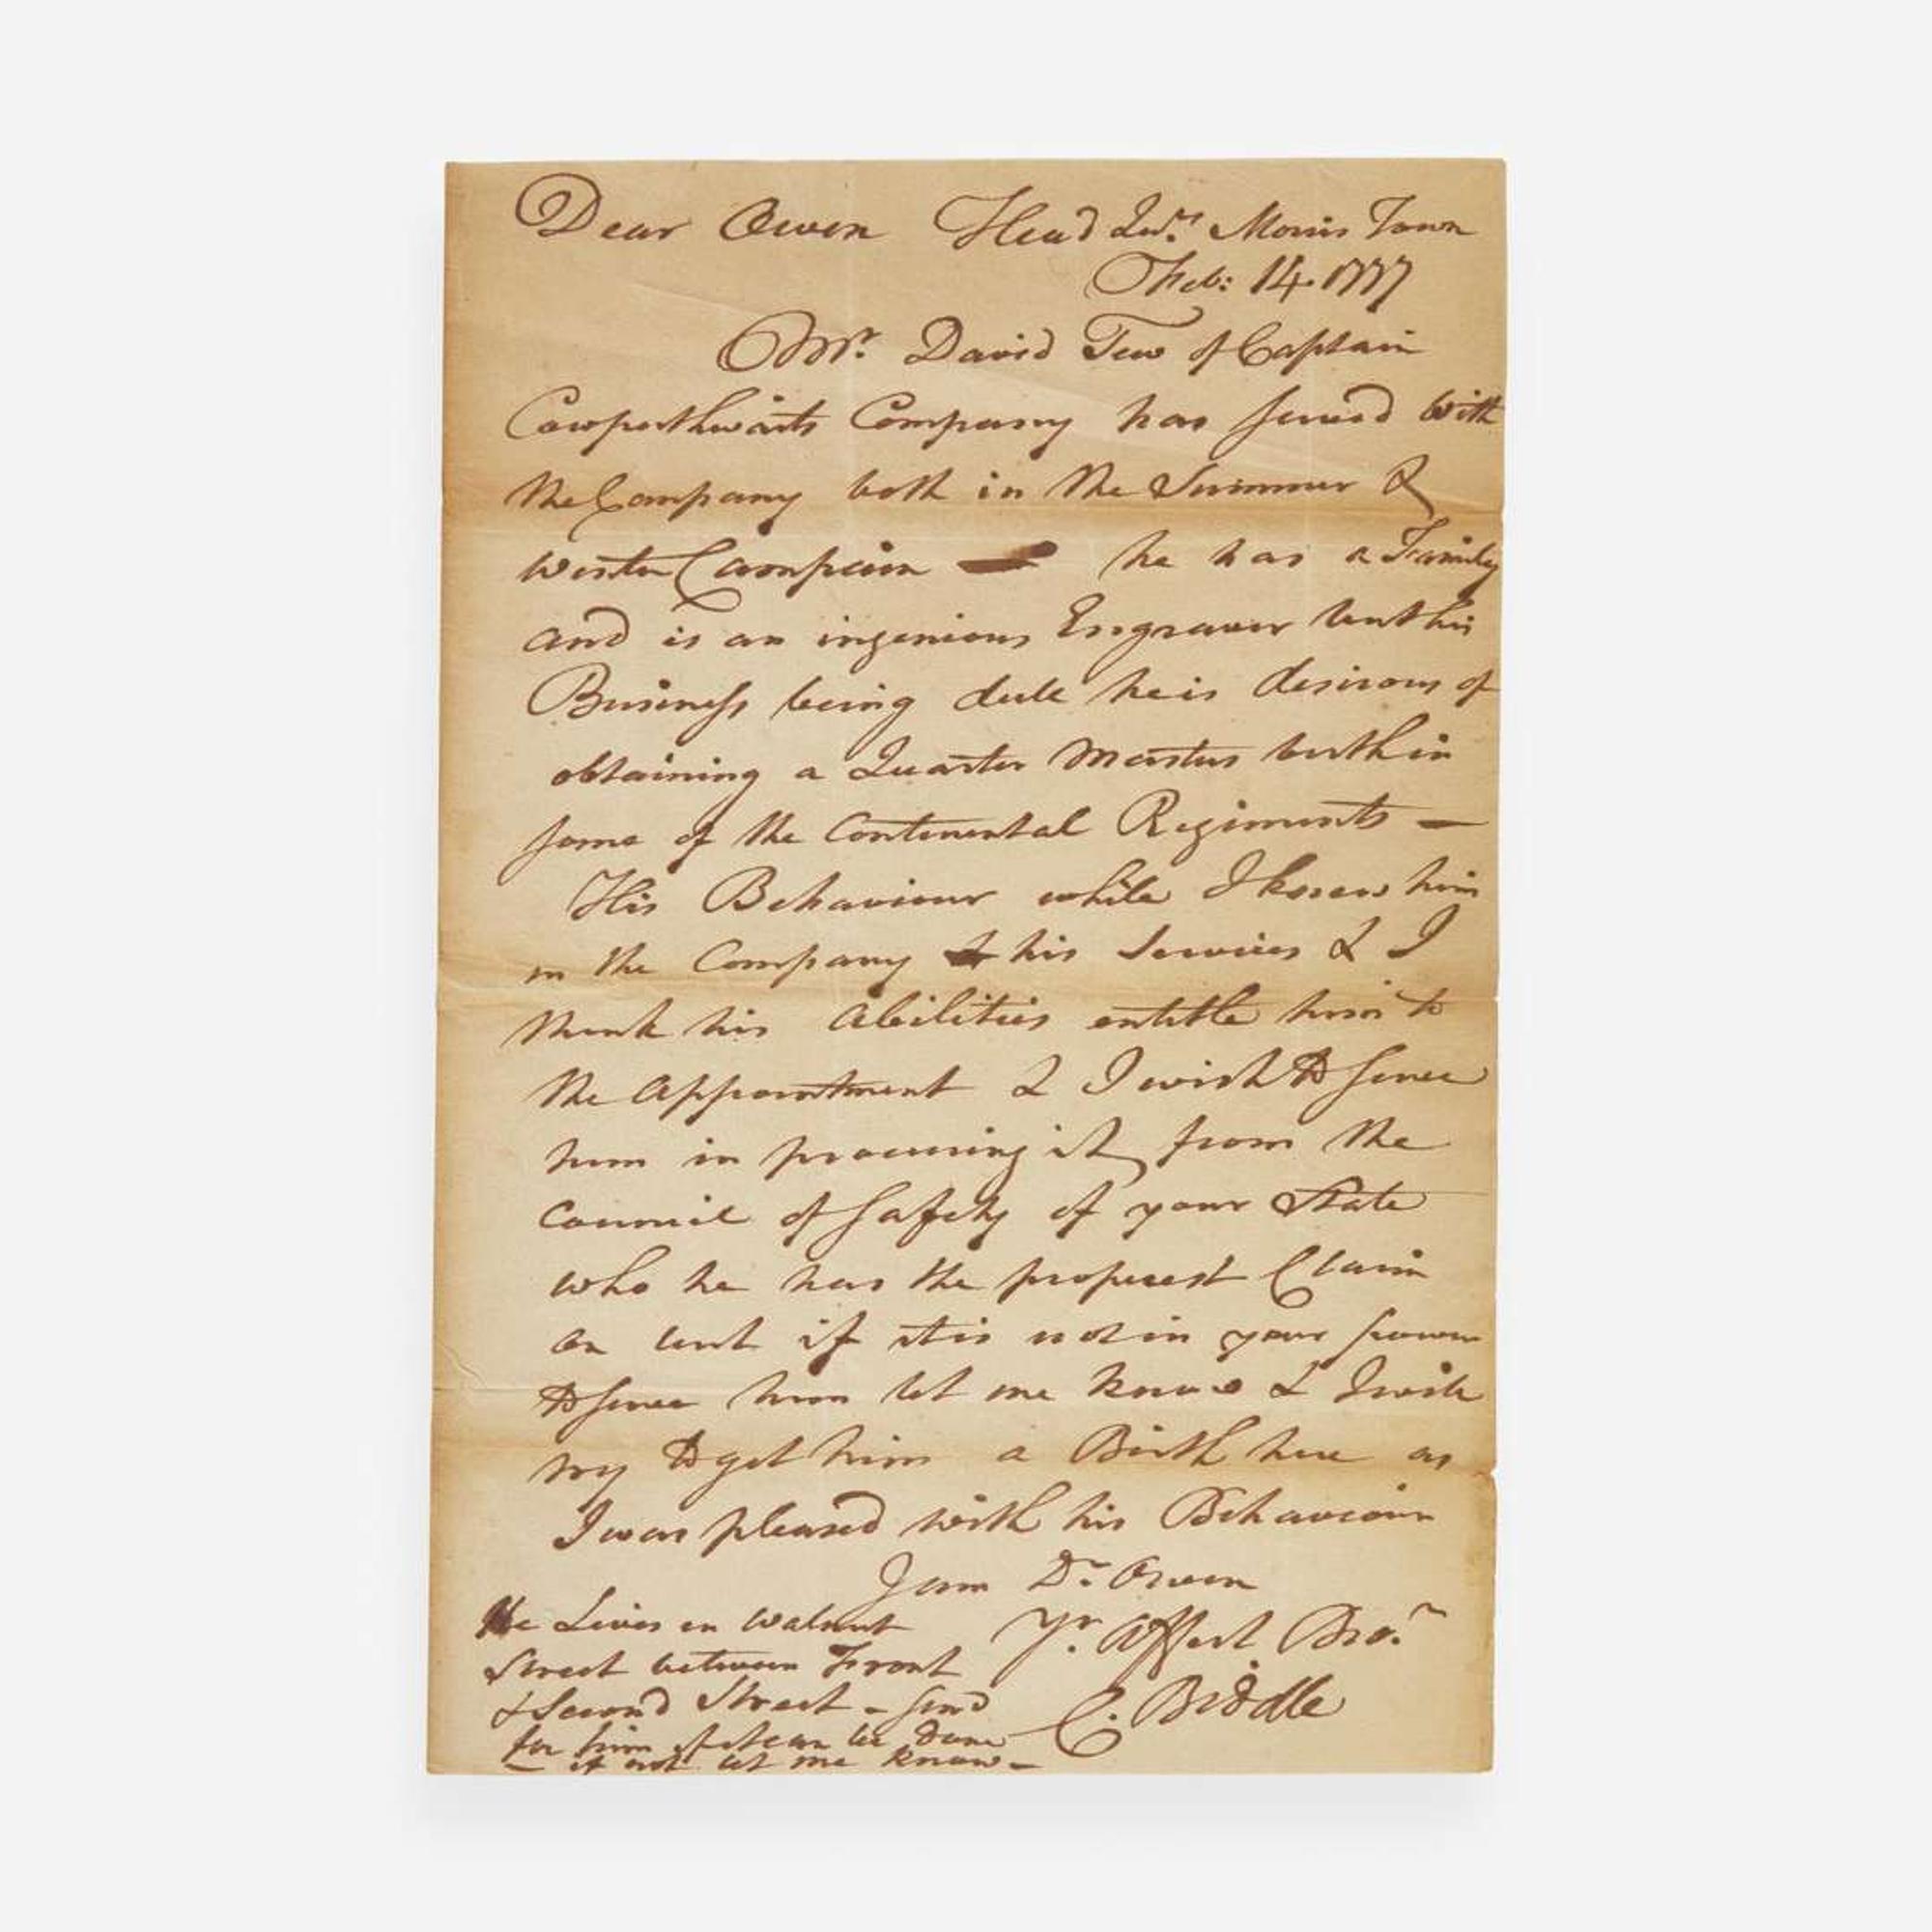 Dear Owen Head Qrs. Morris Town
Feb: 14. 1777
Mr. David Tew of Captain
Cowperthwaits Company has served with
the Company both in the Summer &
Winter Campain — he has a Family
and is an ingenious Engraver but his
Business being dull he is desirous of
obtaining a Quarter Masters birth in
some of the Continental Regiments —
His Behaviour while I knew him
in the Company & his Services & I
think his Abilities entitle him to
the Appointment & I wish to serve
him in procuring it from the
Council of Safety of your State
who he has the properest Claim
on but if it is not in your power
to serve him let me know & I wish
try to get him a Birth here as
I was pleased with his Behaviour
I am Dr. Owen
Yr. Affect Bror.
C. Biddle
He Lives in Walnut
Street between Front
& Second Street - send
for him if it can be Done
— if not let me know —